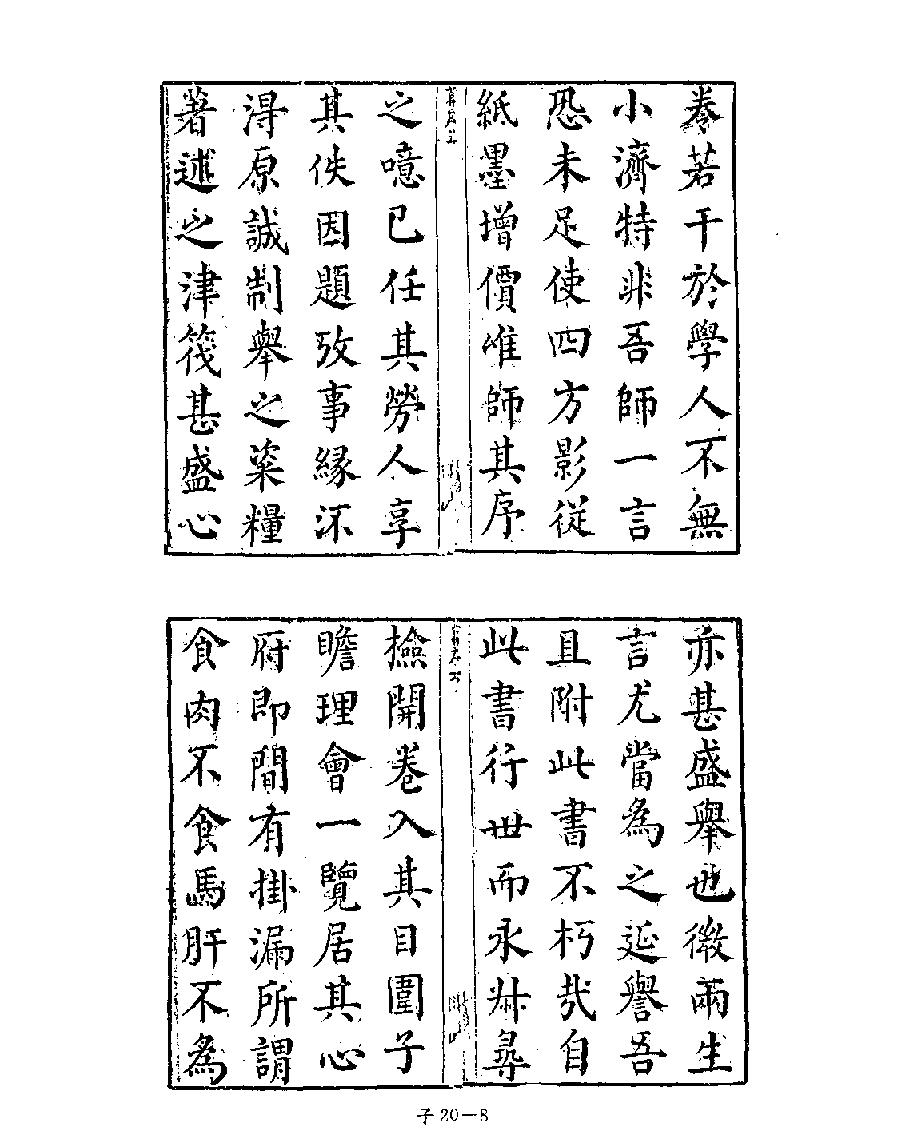 卷若干於學人不無
小濟特非吾師一言
恐未足使四方影從
紙墨增價唯師其序
之噫已任其勞人享
其佚因題攷事緣沠
淂原誠制舉之粢糧
著述之津筏甚盛心
亦甚盛舉也微兩生
言尤當為之延譽吾
且附此書不朽哉自
此書行世而永叔尋
撿開卷入其目圍子
瞻理會一覽居其心
府即間有掛漏所謂
食肉不食馬肝不為
子20—8